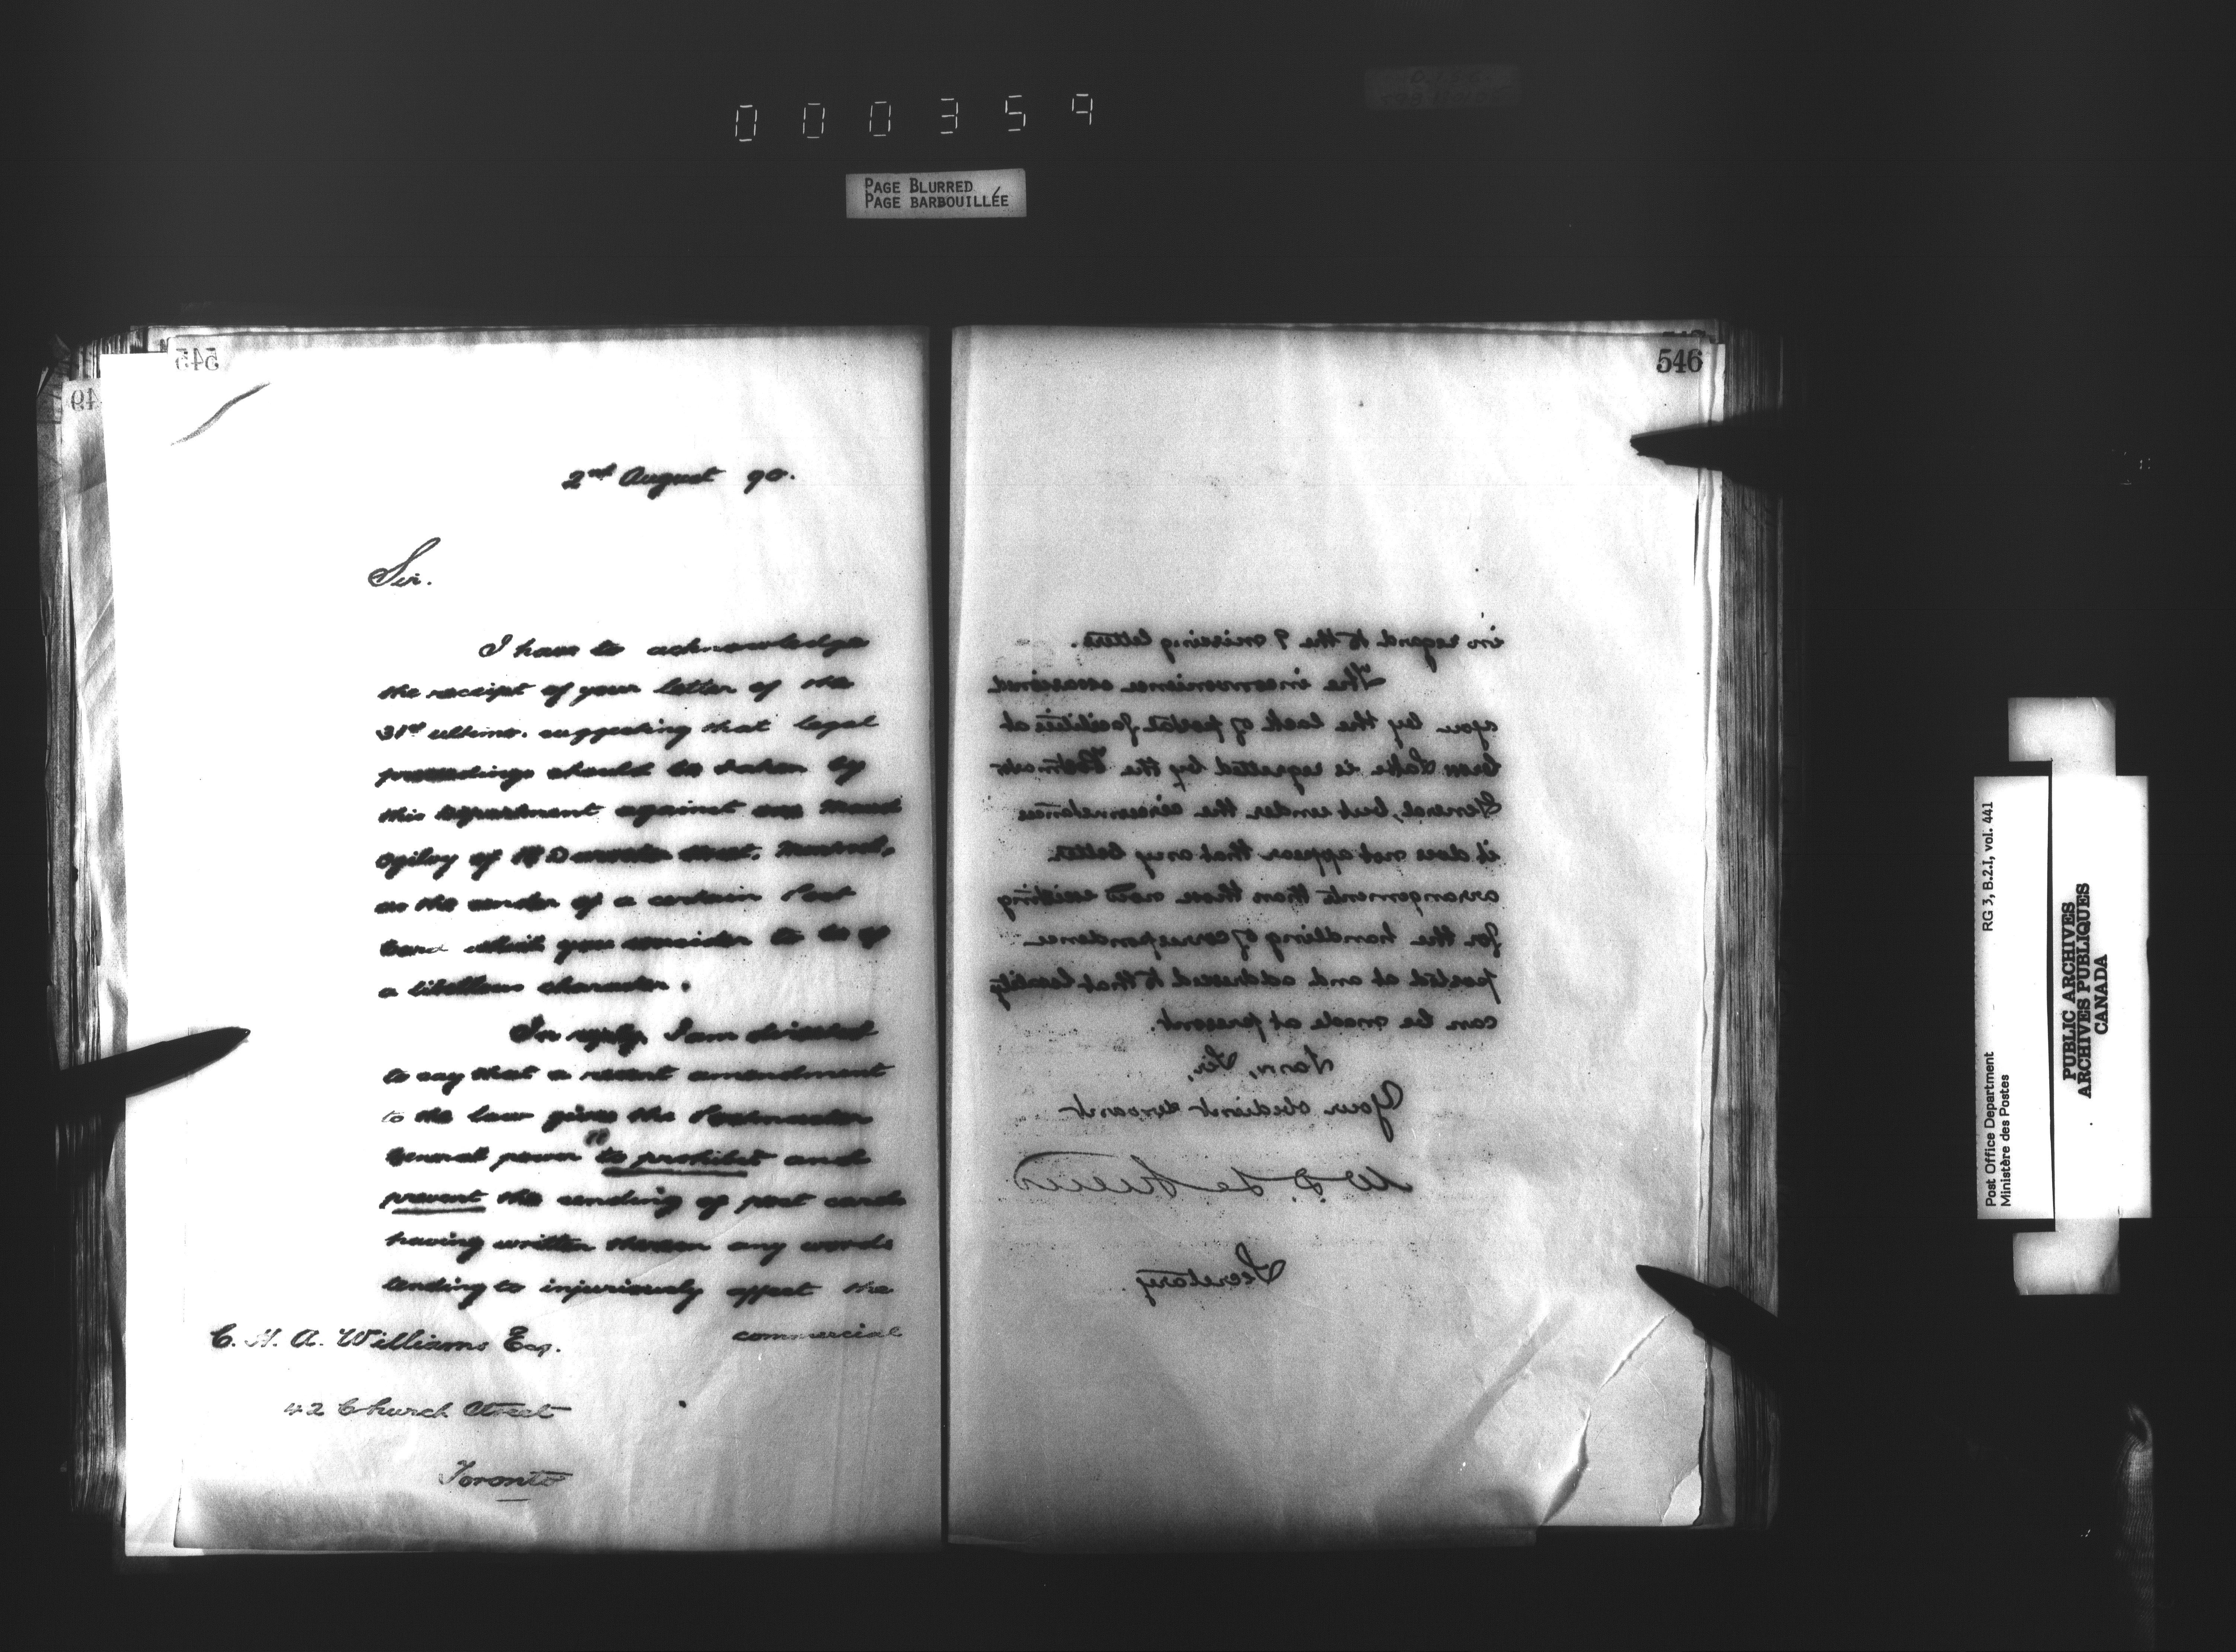 000359
PAGE BLURRED
PAGE BARBOUILLÉE
545
49
2nd August 90.
Sir.
I have to acknowledge
the receipt of your letter of the
31st ultimo. suggesting that legal
proceedings should be taken by
this department against
Ogilvy of
as the sender of a certain Post
Card which you consider to be of
a libellous character.
In reply, I am directed
to say that a recent amendment
to the law gives the Postmaster
General power "to prohibit and
prevent the sending of post cards
having written thereon any words
tending to injuriously affect the
commercial
C. H. A. Williams Esq.
42 Church Street
Toronto
546
in regard to the 9 missing letters.
The inconvenience occasioned
you by the lack of postal facilities at
Lake is regretted by the Postmaster
General, but under the circumstances
it does not appear that any better
arrangements than those now existing
for the handling of correspondence
posted at and addressed to that locality
can be made at present.
I am, Sir,
Your obedient servant
W. D. LeSueur
Secretary.
Post Office Department
Ministère des Postes
RG 3, B.2.1, vol. 441
PUBLIC ARCHIVES
ARCHIVES PUBLIQUES
CANADA